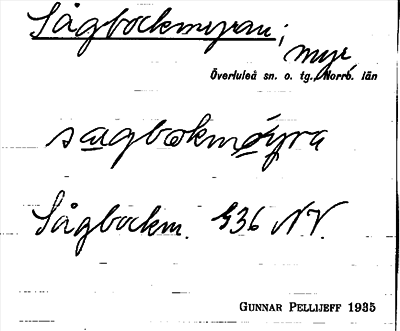 Sågbockmyran;
myr
Överluleå sn. o. tg., Norrb. län
sagbokmöyra
Sågbockm. G36 NV.
GUNNAR PELLIJEFF 1935